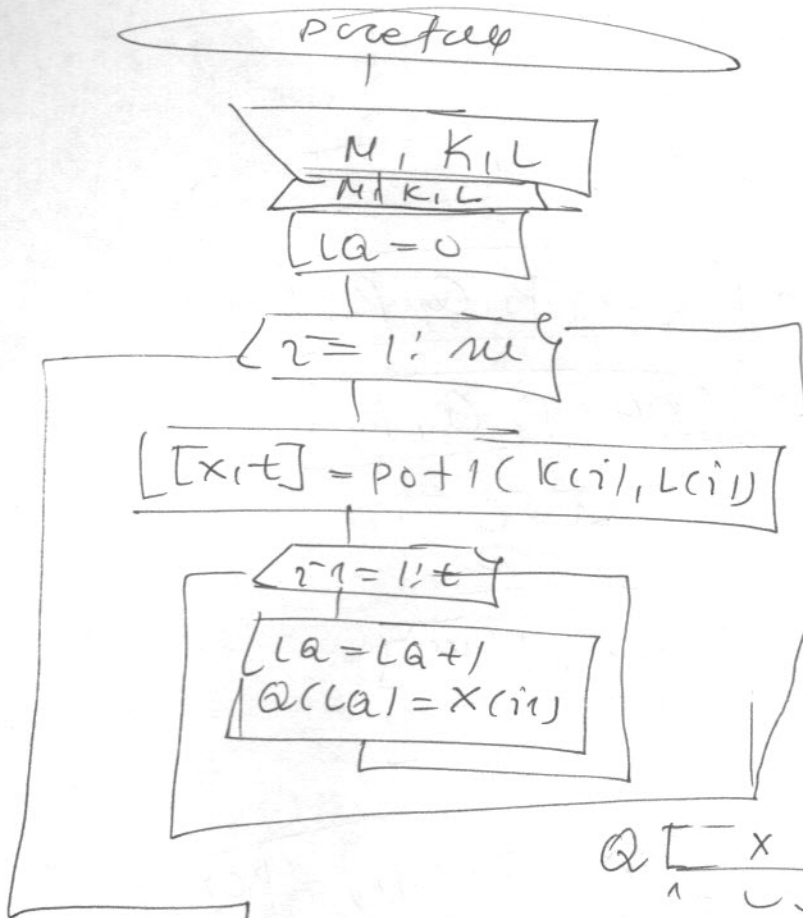 початок
M, K, L
M, K, L
LQ = 0
i = 1 : m
[x, t] = pot1(K(i), L(i))
i1 = 1 : t
LQ = LQ + 1
Q(LQ) = X(i1)
Q [ X
1